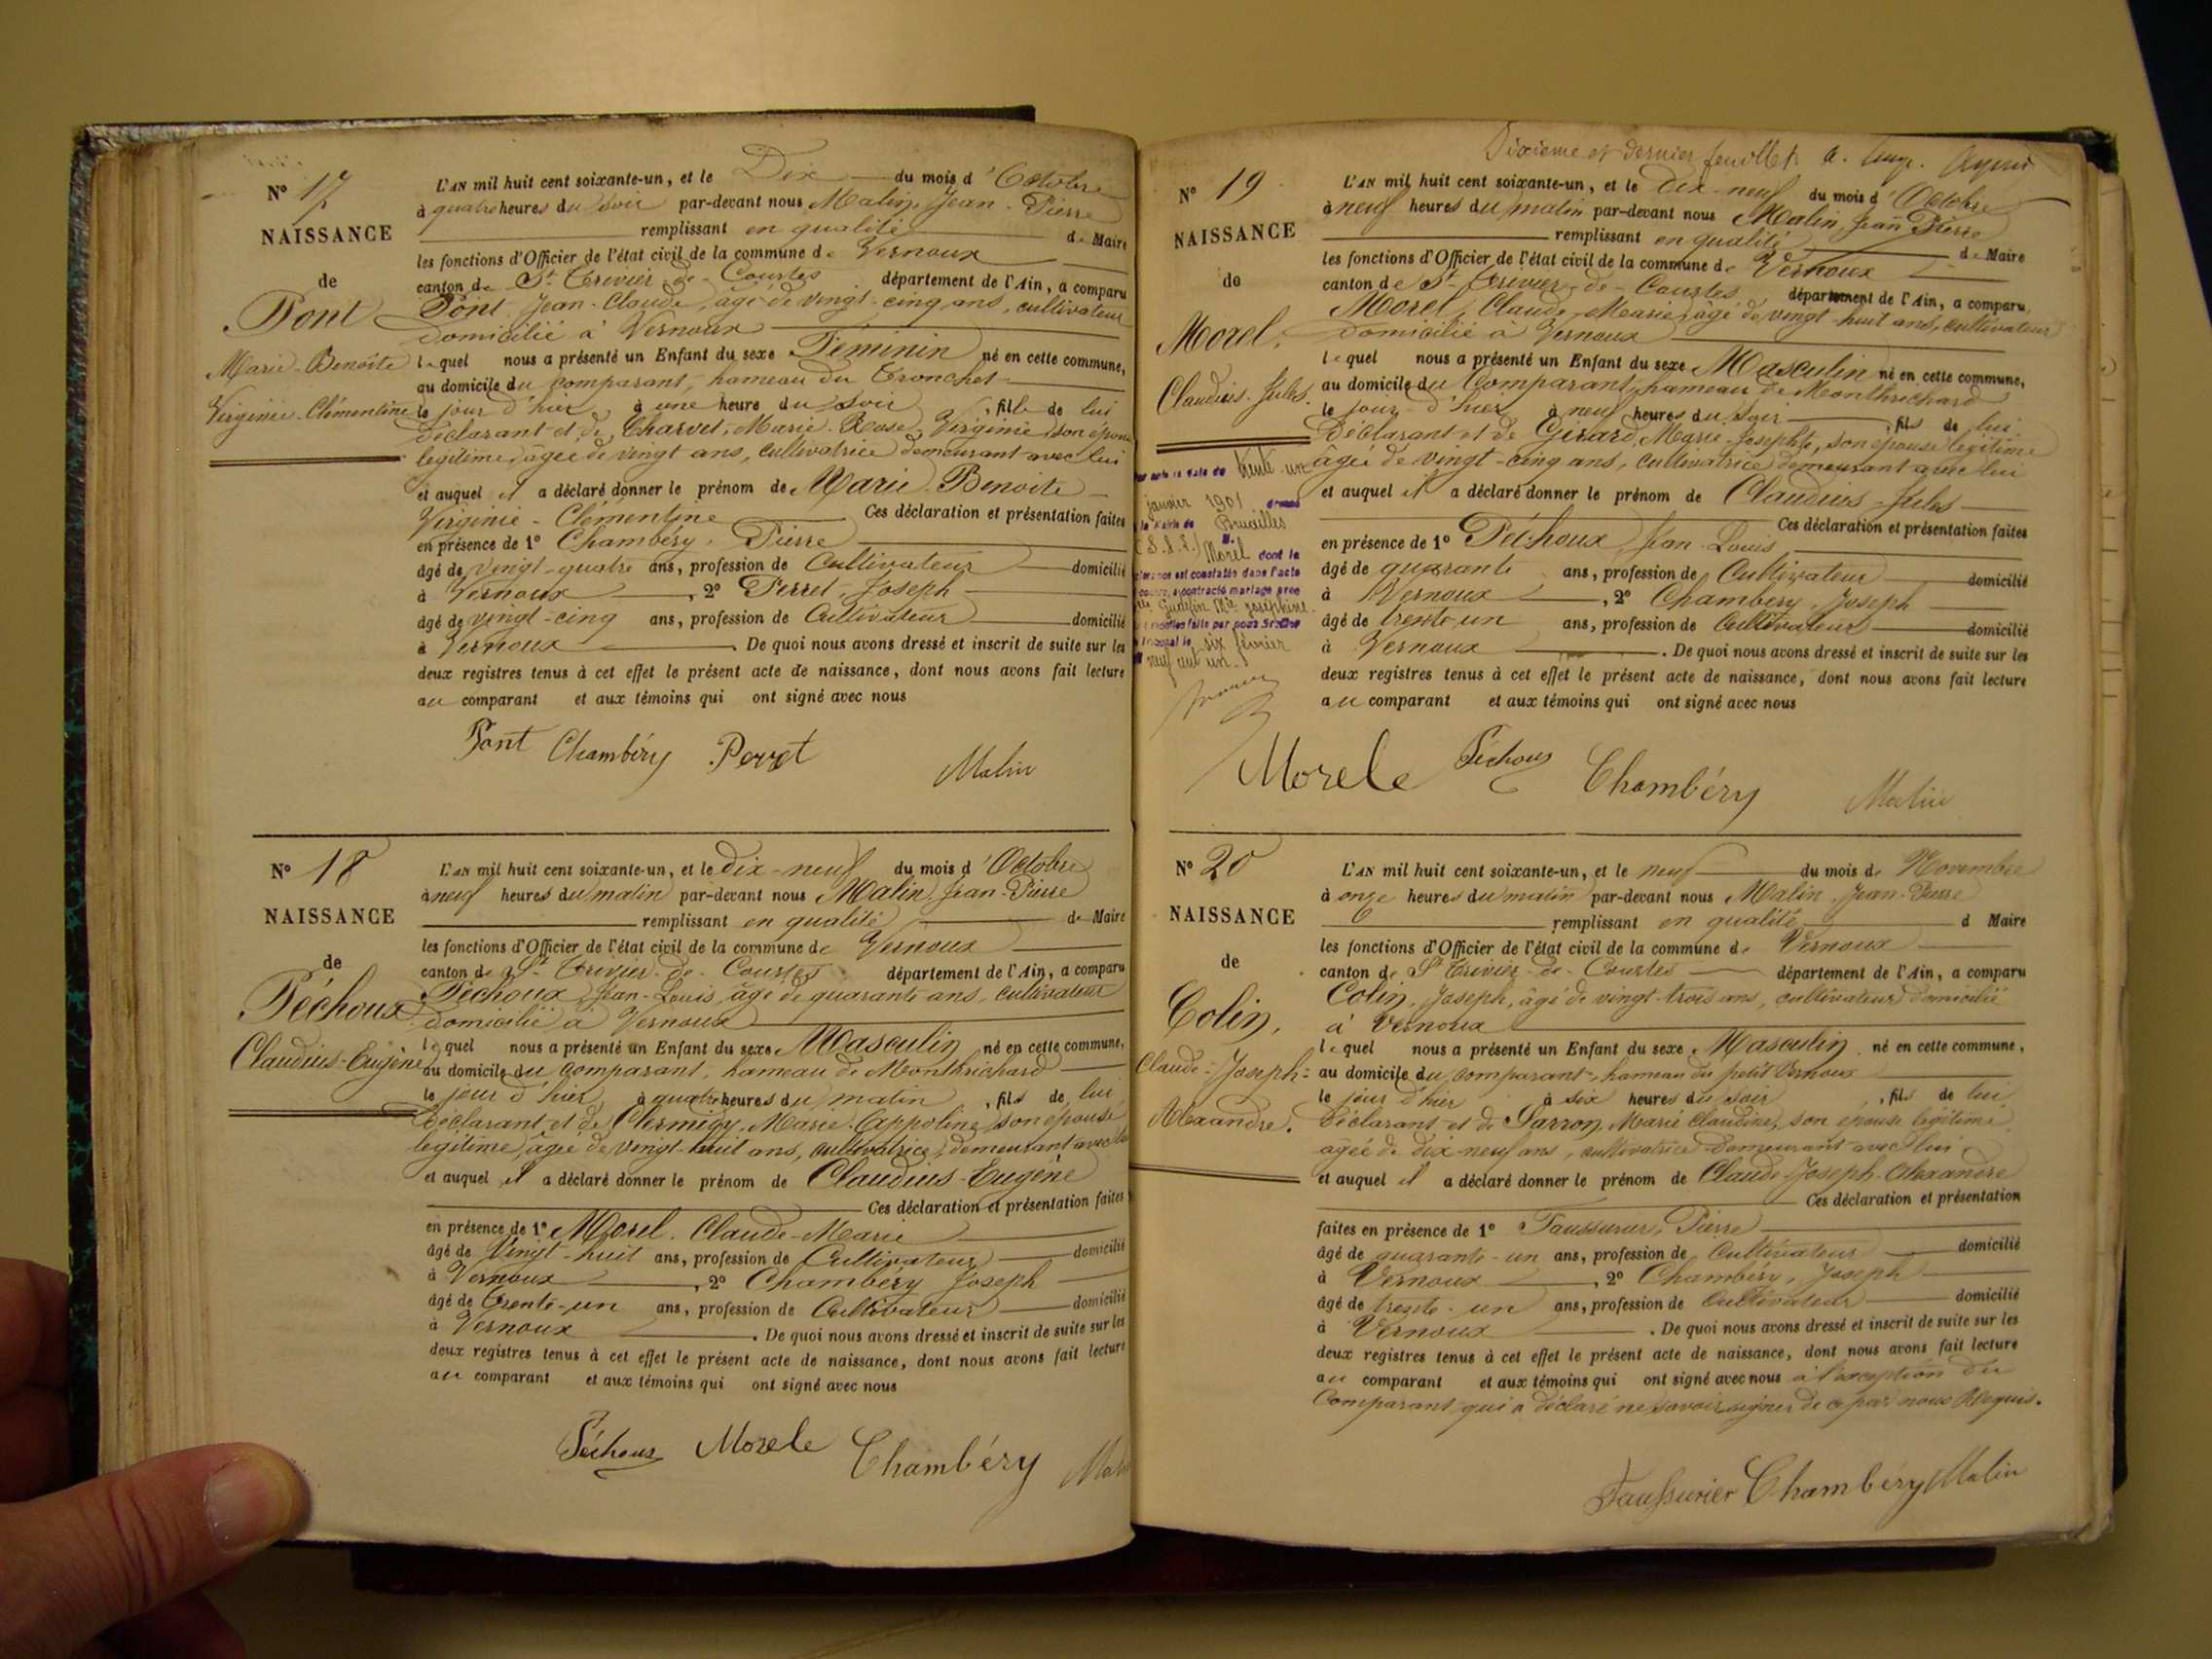 N° 17
NAISSANCE
de
Pont
Marie-Benoîte
Virginie-Clémentine
L'AN mil huit cent soixante-un, et le Dix du mois d'Octobre
à quatre heures du soir par-devant nous Malin, Jean-Pierre
remplissant en qualité de Maire
les fonctions d'Officier de l'état civil de la commune de Vernoux
canton de St Trivier-de-Courtes département de l'Ain, a comparu
Pont, Jean-Claude, âgé de vingt-cinq ans, cultivateur
domicilié à Vernoux
lequel nous a présenté un Enfant du sexe Féminin né en cette commune,
au domicile du comparant, hameau du Tronchet
le jour d'hier à une heure du soir, fille de lui
déclarant et de Charvet, Marie-Rose-Virginie, son épouse
légitime, âgée de vingt ans, cultivatrice demeurant avec lui
et auquel il a déclaré donner le prénom de Marie-Benoite
Virginie-Clémentine Ces déclaration et présentation faites
en présence de 1° Chambéry, Pierre
âgé de vingt-quatre ans, profession de Cultivateur domicilié
à Vernoux, 2° Perret, Joseph
âgé de vingt-cinq ans, profession de Cultivateur domicilié
à Vernoux. De quoi nous avons dressé et inscrit de suite sur les
deux registres tenus à cet effet le présent acte de naissance, dont nous avons fait lecture
au comparant et aux témoins qui ont signé avec nous
Pont Chambéry Perret Malin
N° 18
NAISSANCE
de
Péchoux
Claudius-Eugène
L'AN mil huit cent soixante-un, et le dix-neuf du mois d'Octobre
à neuf heures du matin par-devant nous Malin, Jean-Pierre
remplissant en qualité de Maire
les fonctions d'Officier de l'état civil de la commune de Vernoux
canton de St Trivier-de-Courtes département de l'Ain, a comparu
Péchoux, Jean-Louis, âgé de quarante ans, cultivateur
domicilié à Vernoux
lequel nous a présenté un Enfant du sexe Masculin né en cette commune,
au domicile du comparant, hameau de Monthrichard
le jour d'hier, à quatre heures du matin, fils de lui
déclarant et de Clermidy, Marie-Appoline, son épouse
légitime, âgée de vingt-huit ans, cultivatrice, demeurant avec lui
et auquel il a déclaré donner le prénom de Claudius-Eugène
Ces déclaration et présentation faites
en présence de 1° Morel, Claude-Marie
âgé de Vingt-huit ans, profession de Cultivateur domicilié
à Vernoux, 2° Chambéry Joseph
âgé de Trente-un ans, profession de Cultivateur domicilié
à Vernoux. De quoi nous avons dressé et inscrit de suite sur les
deux registres tenus à cet effet le présent acte de naissance, dont nous avons fait lecture
au comparant et aux témoins qui ont signé avec nous
Péchoux Morele Chambéry
Dixième et dernier feuillet
N° 19
NAISSANCE
de
Morel,
Claudius-Jules.
trente-un
janvier 1901 dressé
la Mairie de Bruailles
(S.&L.) M.
Morel dont la
naissance est constatée dans l'acte
a contracté mariage avec
Mie Joséphine
faite par nous
le six février
neuf cent un.
L'AN mil huit cent soixante-un, et le Dix-neuf du mois d'Octobre
à neuf heures du matin par-devant nous Malin, Jean Pierre
remplissant en qualité de Maire
les fonctions d'Officier de l'état civil de la commune de Vernoux
canton de St-Trivier-de-Courtes département de l'Ain, a comparu
Morel, Claude-Marie, âgé de vingt-huit ans, cultivateur
domicilié à Vernoux
lequel nous a présenté un Enfant du sexe Masculin né en cette commune,
au domicile du Comparant, hameau de Monthrichard
le jour d'hier à neuf heures du soir, fils de lui
déclarant et de Girard, Marie-Josephte, son épouse légitime
âgée de vingt-cinq ans, cultivatrice demeurant avec lui
et auquel il a déclaré donner le prénom de Claudius-Jules
Ces déclaration et présentation faites
en présence de 1° Péchoux, Jean Louis
âgé de quarante ans, profession de Cultivateur domicilié
à Vernoux, 2° Chambéry, Joseph
âgé de trente un ans, profession de Cultivateur domicilié
à Vernoux. De quoi nous avons dressé et inscrit de suite sur les
deux registres tenus à cet effet le présent acte de naissance, dont nous avons fait lecture
au comparant et aux témoins qui ont signé avec nous
Morele Péchoux Chambéry Malin
N° 20
NAISSANCE
de
Colin,
Claude-Joseph-
Alexandre.
L'AN mil huit cent soixante-un, et le neuf du mois de Novembre
à onze heures du matin par-devant nous Malin, Jean-Pierre
remplissant en qualité d Maire
les fonctions d'Officier de l'état civil de la commune de Vernoux
canton de St Trivier-de-Courtes département de l'Ain, a comparu
Colin, Joseph, âgé de vingt-trois ans, cultivateur domicilié
à Vernoux
lequel nous a présenté un Enfant du sexe Masculin né en cette commune,
au domicile du comparant, hameau du petit Vernoux
le jour d'hier à six heures du soir, fils de lui
déclarant et de Sarron, Marie Claudine, son épouse légitime
âgée de dix-neuf ans, cultivatrice demeurant avec lui,
et auquel il a déclaré donner le prénom de Claude-Joseph-Alexandre
Ces déclaration et présentation
faites en présence de 1° Faussurier, Pierre
âgé de quarante-un ans, profession de Cultivateur domicilié
à Vernoux, 2° Chambéry, Joseph
âgé de trente-un ans, profession de Cultivateur domicilié
à Vernoux. De quoi nous avons dressé et inscrit de suite sur les
deux registres tenus à cet effet le présent acte de naissance, dont nous avons fait lecture
au comparant et aux témoins qui ont signé avec nous à l'exception du
Comparant qui a déclaré ne savoir signer de ce par nous Requis.
Faussurier Chambéry Malin